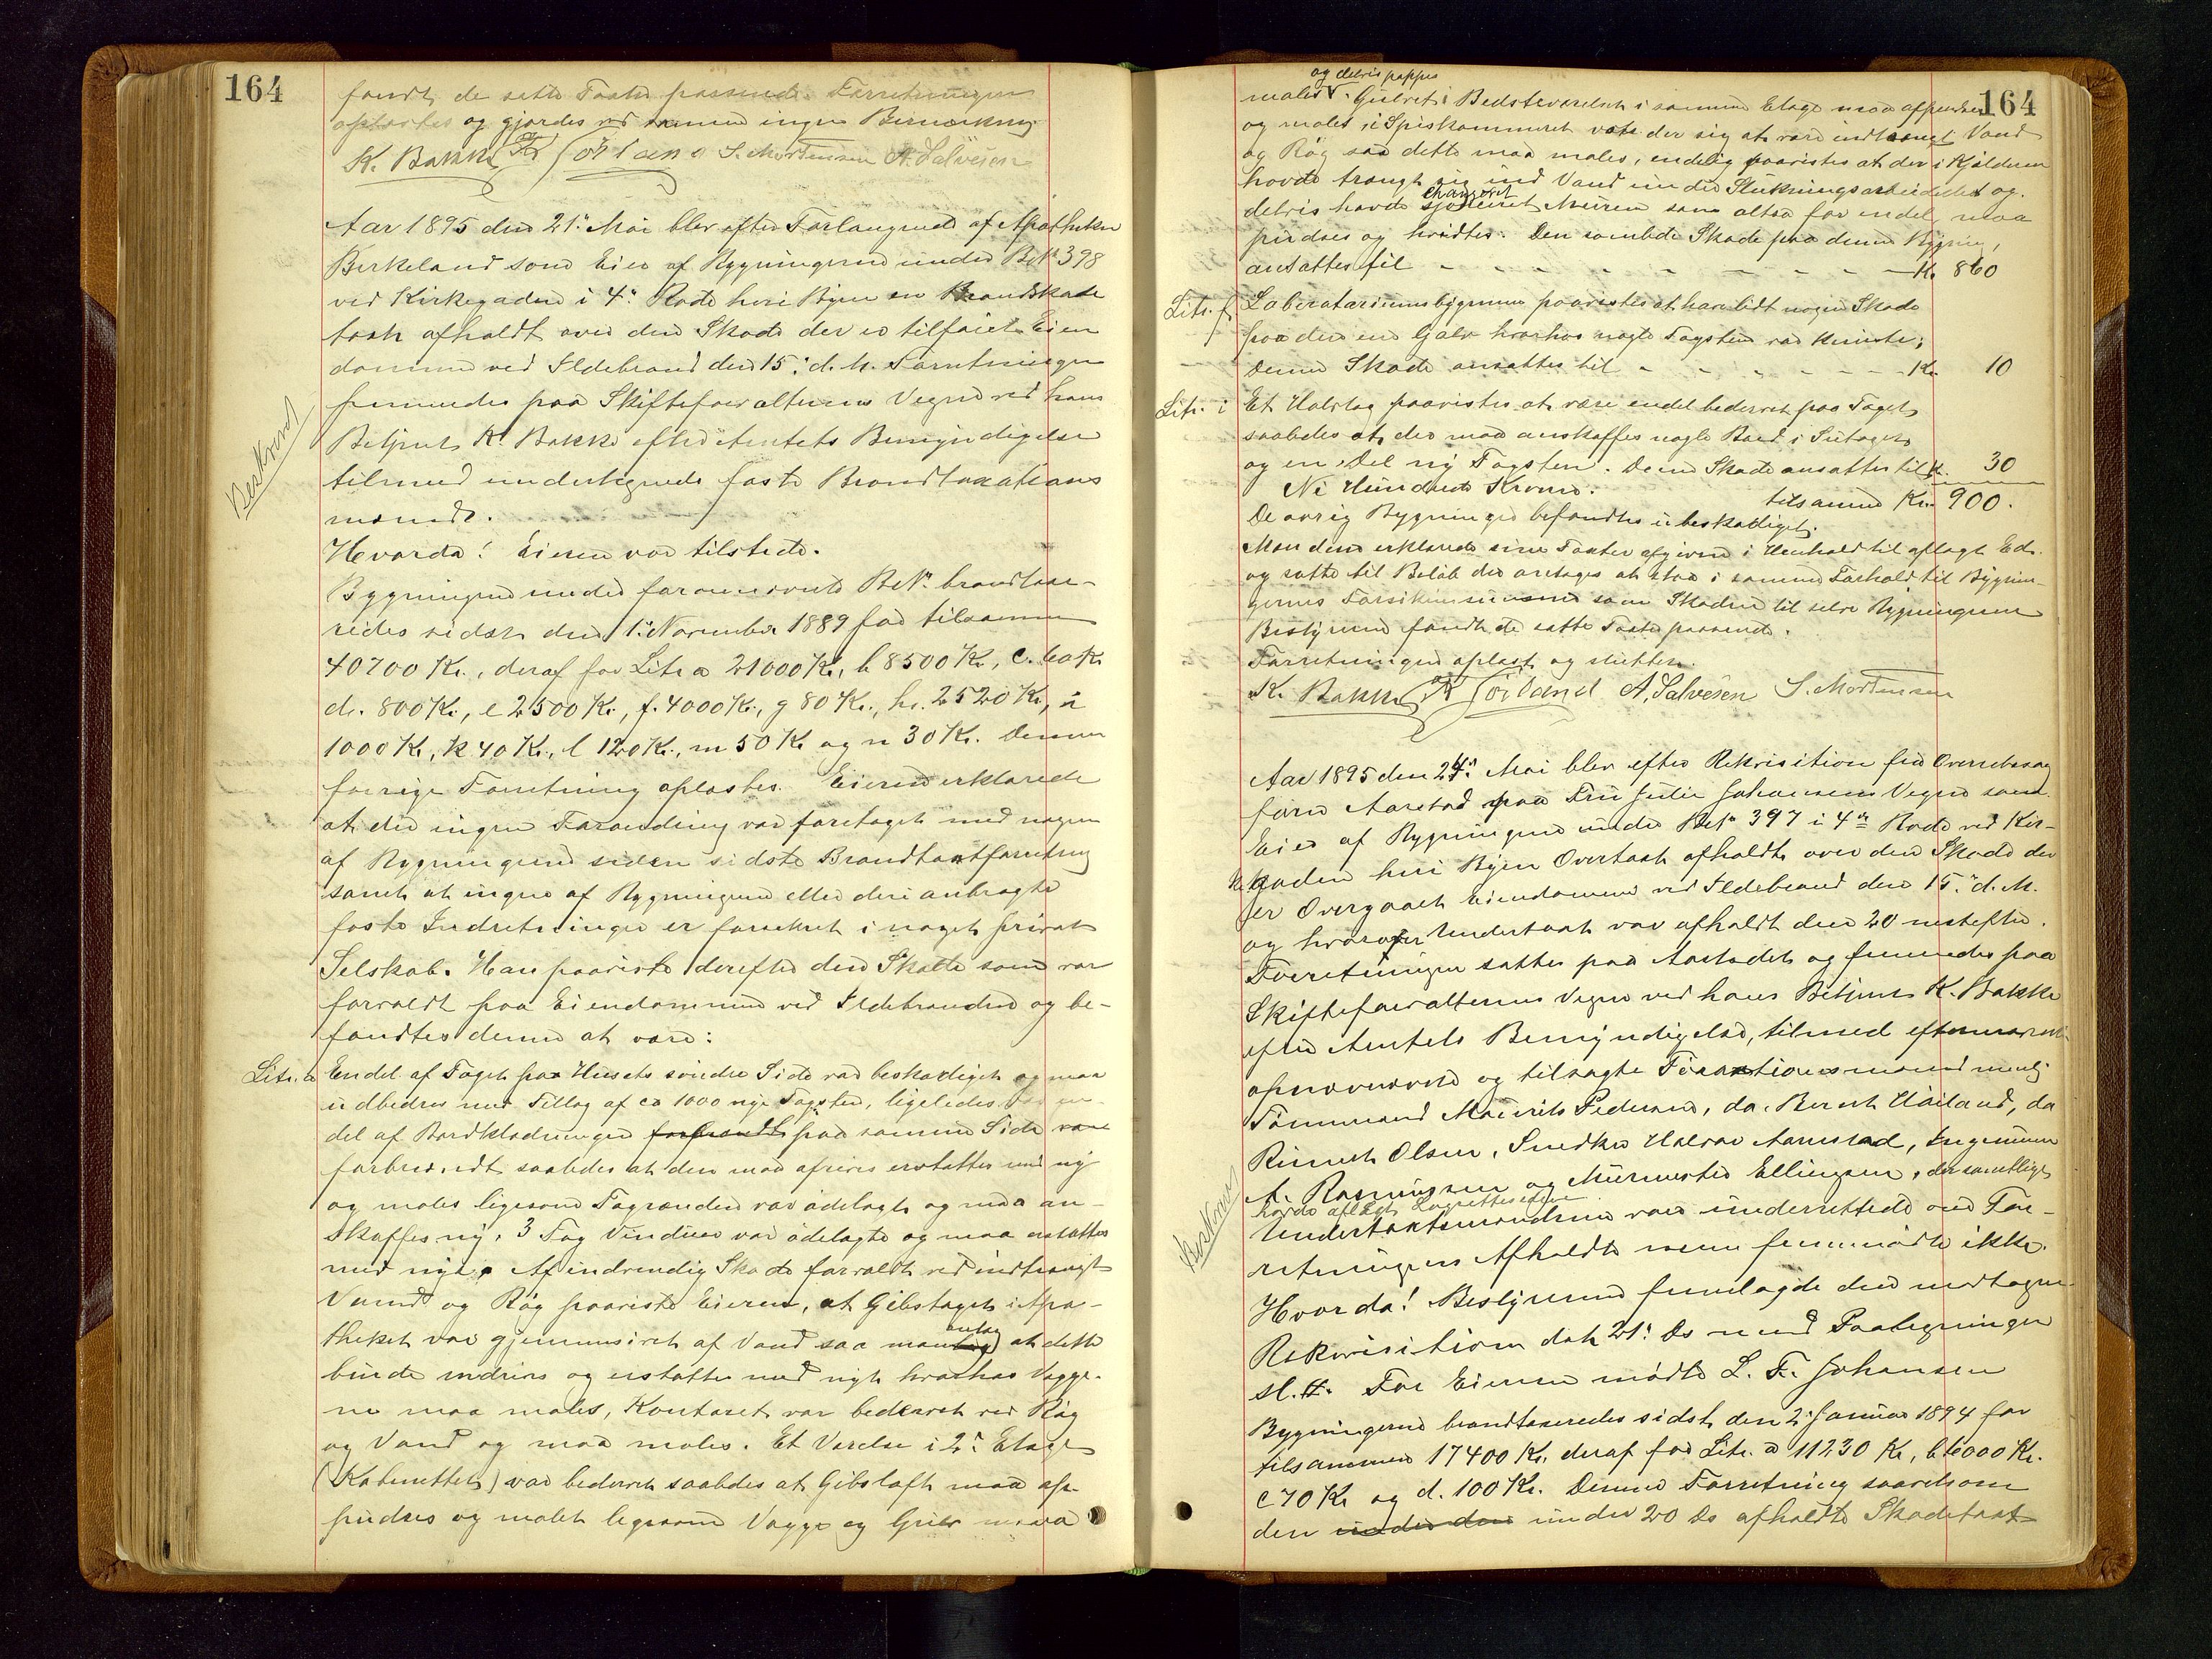 164
fandt de satte Taxter passende. Forretningen
oplæstes og gjordes ved samme ingen Bemærkning.
K. Bakke Høiland S. Mortensen A. Salvesen
Aar 1895 den 21. Mai blev efter Forlangende af Apotheker
Berkeland som Eier af Bygningerne under BrNo 398
ved Kirkegaden i 4. Rode heri Byen en Brandskade
taxt afholdt over den Skade der er tilføiet Eien
dommen ved Ildebrand den 15. d. M. Forretningen
fremmedes paa Skifteforvalterens Vegne ved hans
Betjent K. Bakke efter Amtets Bemyndigelse
tilmed undertegnede faste Brandtaxations
mænd.
Beskrevet
Hvorda! Eieren var tilstede.
Bygningerne under forannævnte BrNo. brandtaxe-
redes sidst den 1. November 1889 for tilsammen
40700 Kr., deraf for Litr a 21000 Kr, b 8500 Kr, c. 60 Kr
d. 800 Kr, e 2500 Kr., f. 4000 Kr., g 80 Kr., h. 2520 Kr, i
1000 Kr, k 40 Kr., l 120 Kr., m 50 Kr og n 30 Kr. Denne
forrige Forretning oplæstes. Eieren erklærede
at der ingen Forandring var foretaget med nogen
af Bygningerne siden sidste Brandtaxtforretning
samt at ingen af Bygningerne eller deri anbragte
faste Indretninger er forsikret i noget privat
Selskab. Han paaviste derefter den Skade som var
forvoldt paa Eiendommen ved Ildebranden og be-
fandtes denne at være:
Litr. a Endel af Taget paa Husets søndre Side var beskadiget og maa
udbedres med Tillæg af ca 1000 nye Tagsten, ligeledes var en
del af Bordklædningen forbrændt paa samme Side var
forbrændt saaledes at den maa afrives erstattes med ny
og males ligesom Tagrenden var ødelagt og maa an-
skaffes ny. 3 Fag Vinduer var ødelagte og maa erstattes
med nye. Af indvendig Skade forvoldt ved indtrængt
Vand og Røg paaviste Eieren, at Gibstaget i Apo-
theket var gjennemsivet af Vand saa man antog at dette
burde nedrives og erstattes med nyt hvorhos Vægge-
ne maa males, Kontoret var bedærvet ved Røg
og Vand og maa males. Et Værelse i 2. Etage
(Kabinettet) var bedærvet saaledes at Gibsloft maa af-
pudses og malet ligesom Vægge og Gulv maa
164
og delvis pappes
males. Gulvet i Bedsteværelset i samme Etage maa afpudses
og males, i Spiskammeret viste der sig at være indtrængt Vand
og Røg saa dette maa males, endelig paavistes at der i Kjælderen
havde trængt sig ind Vand under Slukningsarbeidet og
delvis havde changeret Muren som altsaa for endel maa
pudses og hvidtes. Den samlede Skade paa denne Bygning
ansattes til - - - - - - - - Kr. 860
Litr. f. Laboratoriumsbygningen paavistes at have lidt nogen Skade
paa den ene Gavl hvorhos nogle Tagsten var knuste;
denne Skade ansattes til - - - - - - Kr. 10
Litr. i Et Halvtag paavistes at være endel bedærvet paa Taget
saaledes at der maa anskaffes nogle Bord i Sutaget
og en Del ny Tagsten. Denne Skade ansattes til Kr. 30
Ni Hundrede Kroner. tilsammen Kr. 900.
De øvrige Bygninger befandtes ubeskadiget.
Mændene erklærede sine Taxter afgivne i Henhold til aflagt Ed.
og satte til Beløb der antages at staa i samme Forhold til Bygnin-
gernes Forsikringssum som Skaden til selve Bygningerne
Bestyreren fandt de satte Taxter passende.
Forretningen oplæst og sluttet.
K. Bakke Høiland A. Salvesen S. Mortensen
Aar 1895 den 24. Mai blev efter Rekvisition fra Overretssag
fører Aarstad paa Fru Julie Johansens Vegne som
Eier af Bygningerne under BrNo 397 i 4de Rode ved Kir-
kegaden heri Byen Overtaxt afholdt over den Skade der
er Overgaaet Eiendommen ved Ildebrand den 15. d. M.
og hvorover Undertaxt var afholdt den 20 næstefter.
Forretningen sattes paa Aastedet og fremmedes paa
Skifteforvalterens Vegne ved hans Betjent K. Bakke
efter Amtets Bemyndigelse, tilmed efternævnte
opnævnte og tilsagte Taxationsmænd nemlig
Tømmermand Mauritz Pedersen, do. Bernt Høiland, do
Reinert Olsen, Snedker Halvor Aarrestad, Ingeniør
A. Rasmussen og Murmester Ellingsen, der samtlige
havde aflagt Lagretteseden
Beskrevet
Undertaxtmændene vare underrettede om For-
retningens Afholdte men fremmødte ikke.
Hvorda! Bestyreren fremlagde den modtagne
Rekvisition dat 21. ds med Paategninger
sl. H. For Eieren mødte L. F. Johansen
Bygningerne brandtaxeredes sidst den 2. Januar 1894 for
tilsammen 17400 Kr, deraf for Litr. a 11230 Kr, b 6000 Kr.
c 70 Kr og d. 100 Kr. Denne Forretning saavelsom
den under den under 20 ds afholdte Skadetaxt